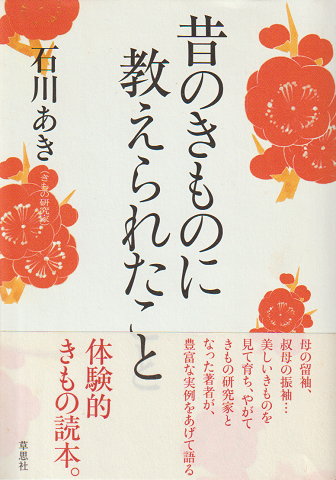 昔のきものに
教えられたこと
石川あき
(きもの研究家)
母の留袖、
叔母の振袖…
美しいきものを
見て育ち、やがて
きもの研究家と
なった著者が、
豊富な実例をあげて語る
体験的
きもの読本。
草思社